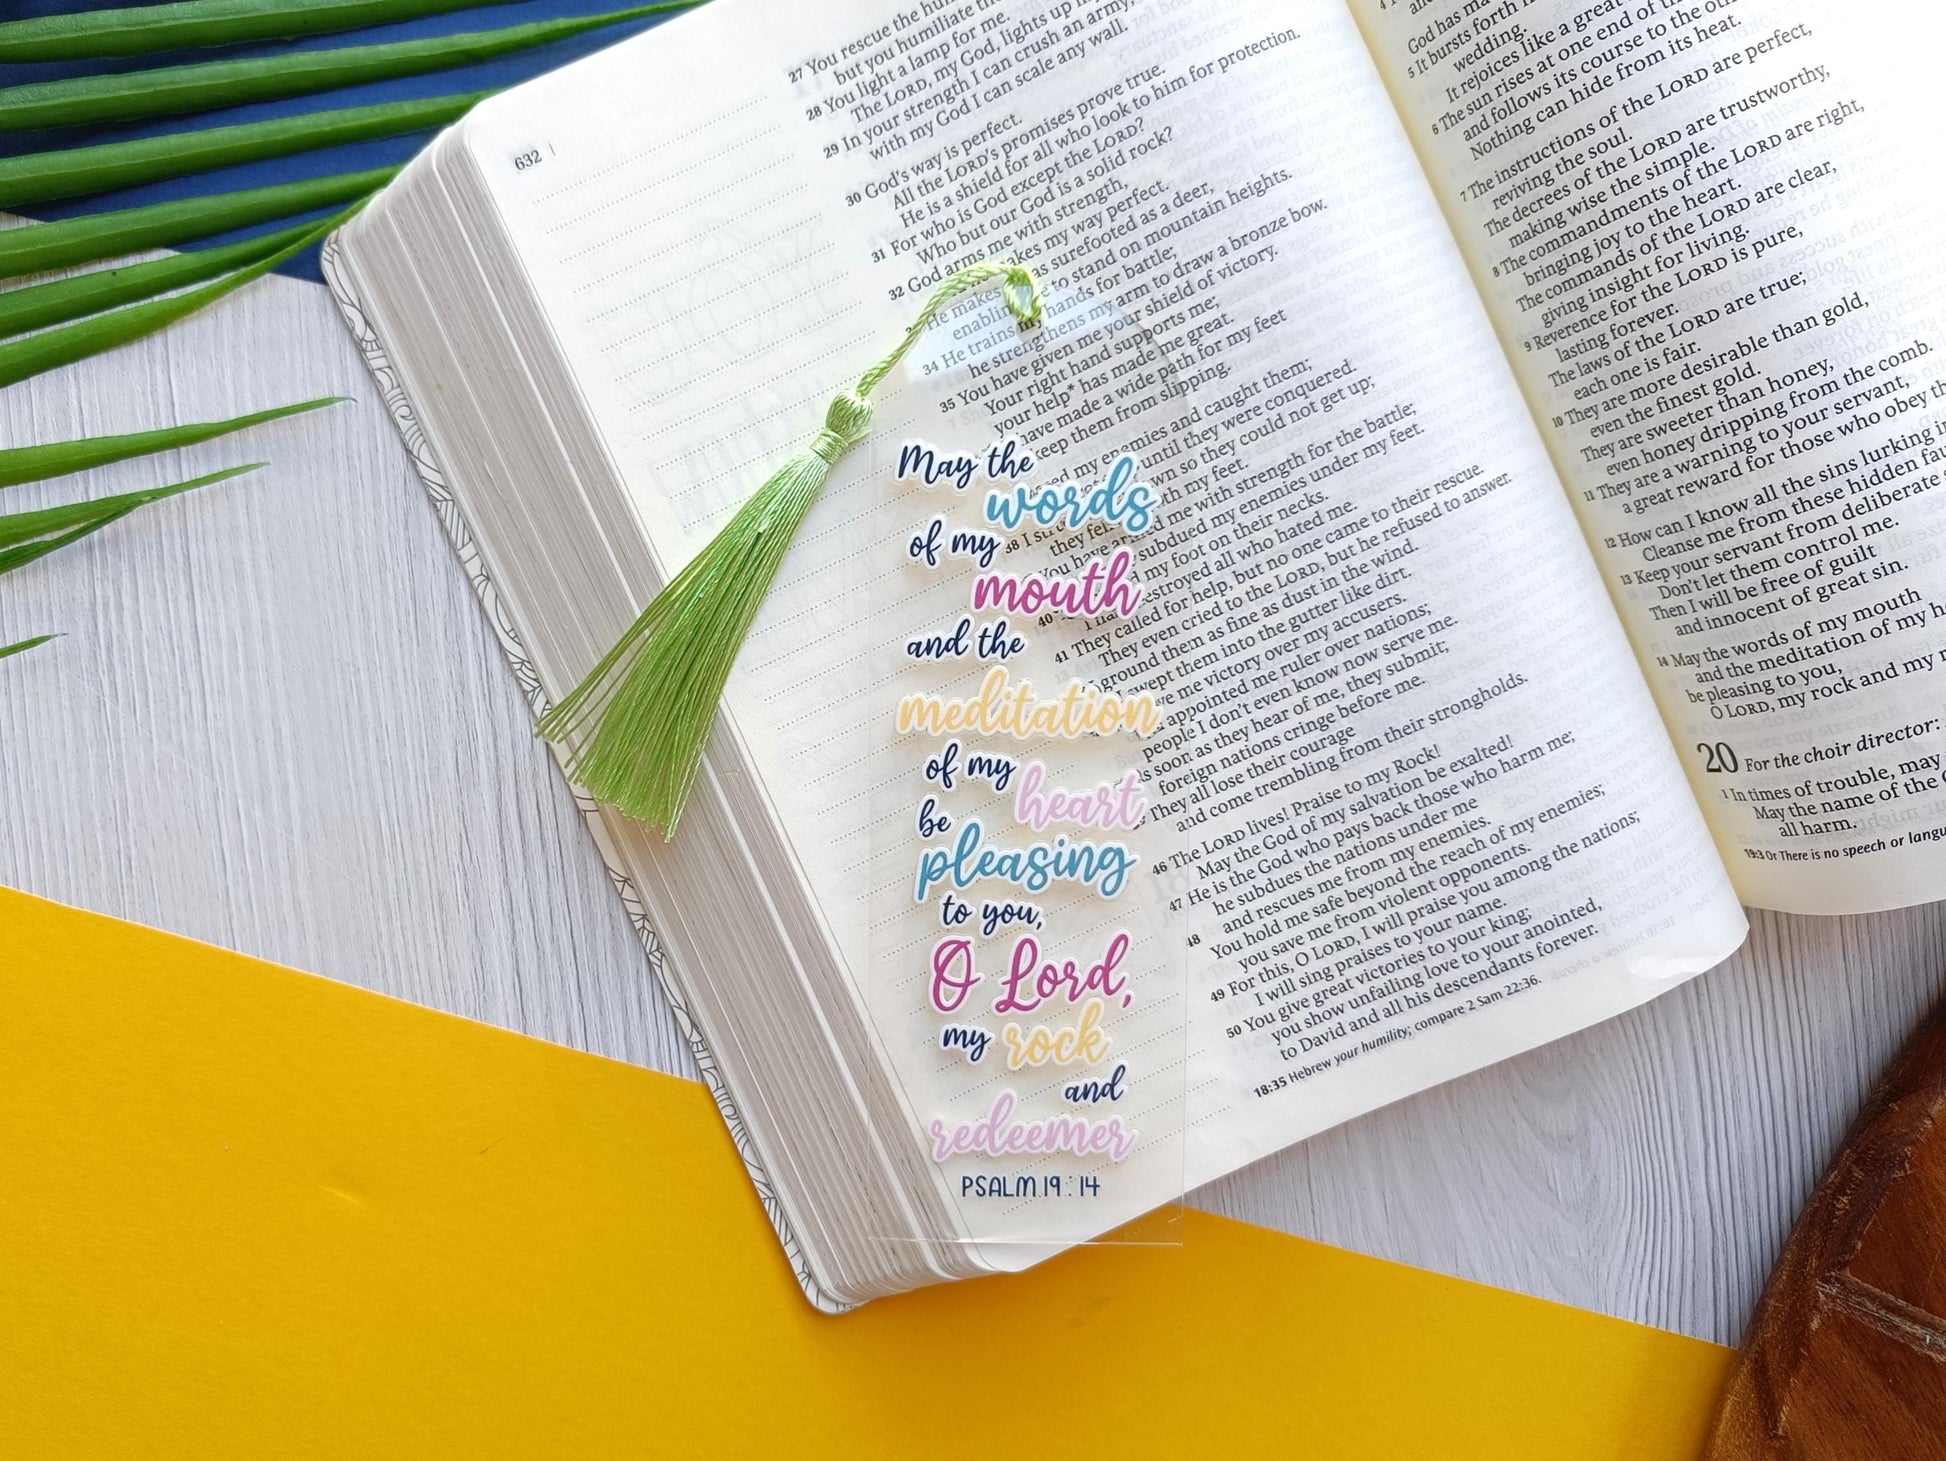 632
27 You rescue the hum
but you humiliate the
28 You light a lamp for me.
The LORD, my God, lights up my
29 In your strength I can crush an army,
with my God I can scale any wall.
30 God's way is perfect.
All the LORD's promises prove true.
He is a shield for all who look to him for protection.
31 For who is God except the LORD?
Who but our God is a solid rock?
32 God arms me with strength,
makes my way perfect.
He makes as surefooted as a deer,
enablin to stand on mountain heights.
34 He trains my hands for battle;
he strengthens my arm to draw a bronze bow.
35 You have given me your shield of victory.
Your right hand supports me;
your help* has made me great.
have made a wide path for my feet
keep them from slipping.
my enemies and caught them;
until they were conquered.
38 I so they could not get up;
they fel my feet.
You have me with strength for the battle;
subdued my enemies under my feet.
40 my foot on their necks.
destroyed all who hated me.
41 They called for help, but no one came to their rescue.
They even cried to the LORD, but he refused to answer.
ground them as fine as dust in the wind.
swept them into the gutter like dirt.
me victory over my accusers.
appointed me ruler over nations;
people I don't even know now serve me.
soon as they hear of me, they submit;
foreign nations cringe before me.
They all lose their courage
and come trembling from their strongholds.
46 The LORD lives! Praise to my Rock!
May the God of my salvation be exalted!
47 He is the God who pays back those who harm me;
he subdues the nations under me
48 and rescues me from my enemies.
You hold me safe beyond the reach of my enemies;
you save me from violent opponents.
49 For this, O LORD, I will praise you among the nations;
I will sing praises to your name.
50 You give great victories to your king;
you show unfailing love to your anointed,
to David and all his descendants forever.
18:35 Hebrew your humility; compare 2 Sam 22:36.
May the
words
of my
mouth
and the
meditation
of my
heart
be
pleasing
to you,
O Lord,
my rock
and
redeemer
PSALM 19:14
God has ma
5 It bursts forth
wedding.
It rejoices like a great
6 The sun rises at one end of the
and follows its course to the oth
Nothing can hide from its heat.
7 The instructions of the LORD are perfect,
reviving the soul.
The decrees of the LORD are trustworthy,
making wise the simple.
8 The commandments of the LORD are right,
bringing joy to the heart.
The commands of the LORD are clear,
giving insight for living.
9 Reverence for the LORD is pure,
lasting forever.
The laws of the LORD are true;
each one is fair.
10 They are more desirable than gold,
even the finest gold.
They are sweeter than honey,
even honey dripping from the comb.
11 They are a warning to your servant,
a great reward for those who obey th
12 How can I know all the sins lurking in
Cleanse me from these hidden fau
13 Keep your servant from deliberate
Don't let them control me.
Then I will be free of guilt
and innocent of great sin.
14 May the words of my mouth
and the meditation of my h
be pleasing to you,
O LORD, my rock and my r
20 For the choir director:
1 In times of trouble, may
May the name of the
all harm.
19:3 Or There is no speech or langu